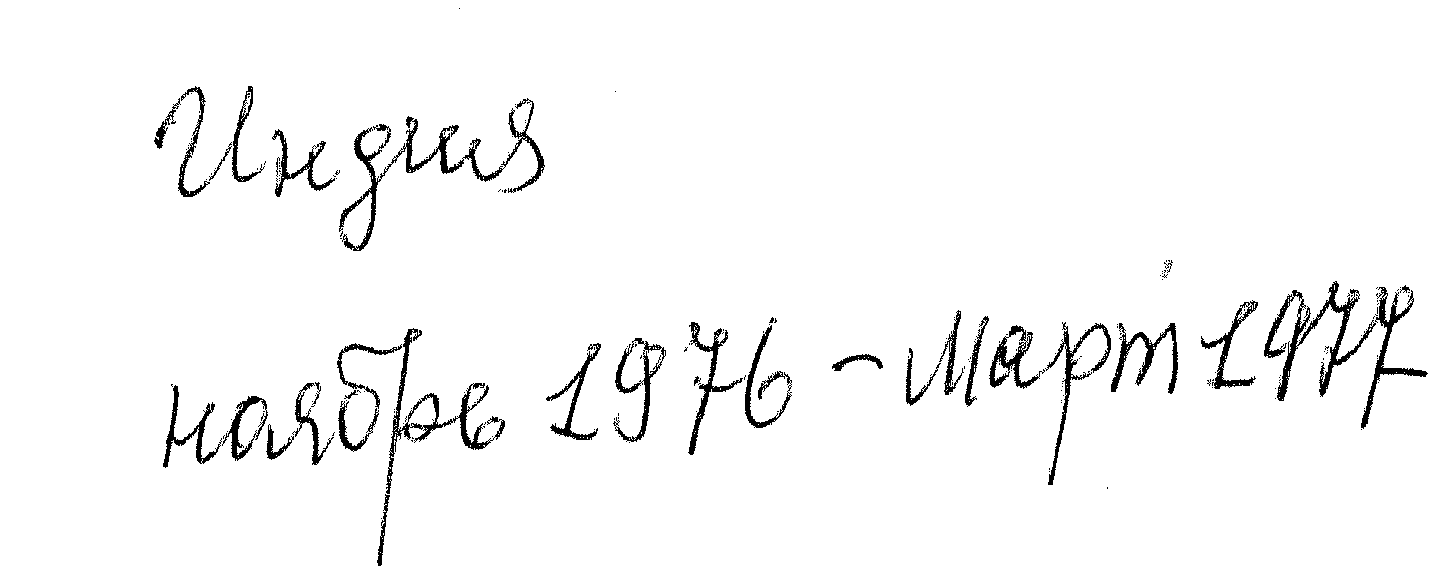 Индия
ноябрь 1976 – март 1977